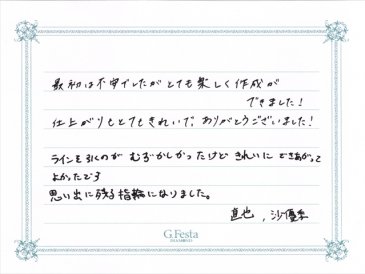 最初は不安でしたがとても楽しく作成が
できました!
仕上がりもとてもきれいで、ありがとうございました!
ラインを引くのがむずかしかったけどきれいにできあがって
よかったです
思い出に残る指輪になりました。
直也、沙優希
G.Festa